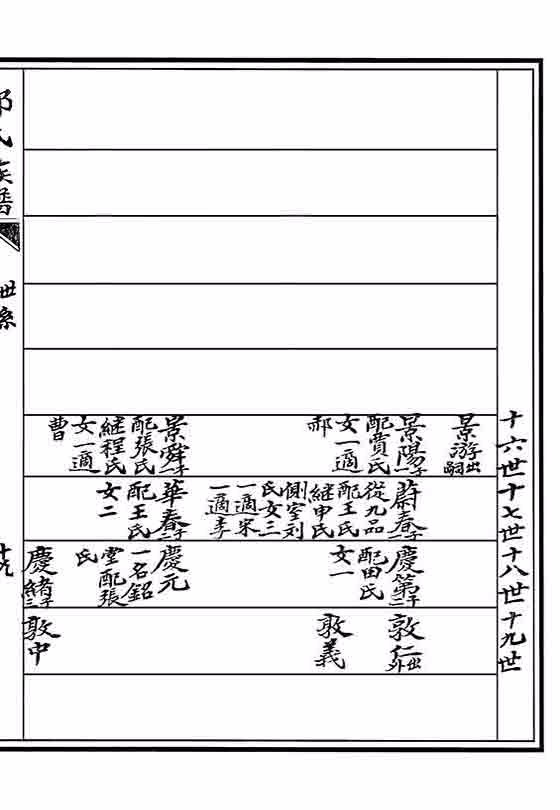 十六世
十七世
十八世
十九世
景游出嗣
景陽一子
配賈氏
女一適
郝
景舜一子
配張氏
繼程氏
女一適
曹
蔚春二子
從九品
配王氏
繼申氏
側室劉
氏女三
一適宋
一適李
華春二子
配王氏
女二
慶第二子
配田氏
女一
慶元
一名銘
堂配張
氏
慶緒三子
敦仁出外
敦義
敦中
氏族譜
世系
十九